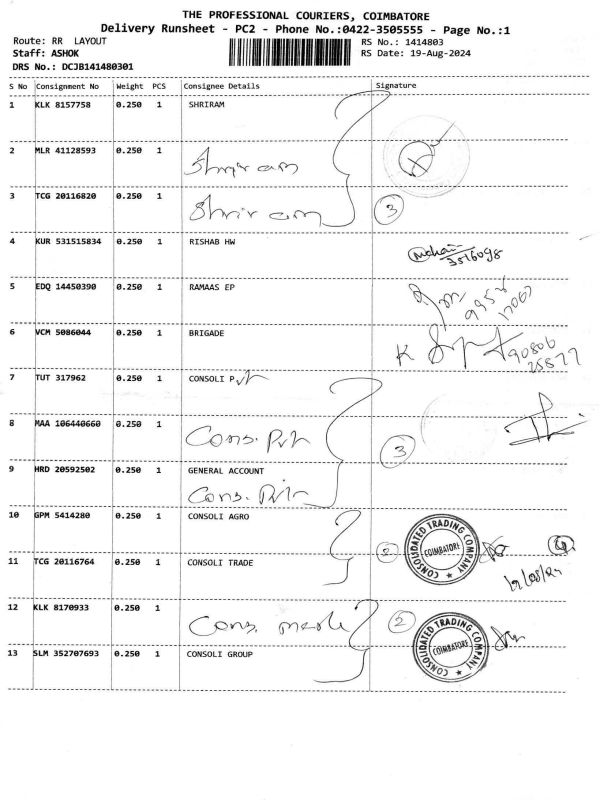 THE PROFESSIONAL COURIERS, COIMBATORE
Delivery Runsheet - PC2 - Phone No.:0422-3505555 - Page No.:1
Route: RR LAYOUT RS No.: 1414803
Staff: ASHOK RS Date: 19-Aug-2024
DRS No.: DCJB141480301
S No Consignment No Weight PCS Consignee Details Signature
1 KLK 8157758 0.250 1 SHRIRAM
2 MLR 41128593 0.250 1 Shriram
3 TCG 20116820 0.250 1 Shriram 3
4 KUR 531515834 0.250 1 RISHAB HW
5 EDQ 14450390 0.250 1 RAMAAS EP
6 VCM 5086044 0.250 1 BRIGADE
K
90806
25877
7 TUT 317962 0.250 1 CONSOLI Pvt
8 MAA 106440660 0.250 1 Cons. Pvt 3
9 HRD 20592502 0.250 1 GENERAL ACCOUNT
Cons. Pvt
10 GPM 5414280 0.250 1 CONSOLI AGRO
2
CONSOLIDATED TRADING COMPANY
COIMBATORE
11 TCG 20116764 0.250 1 CONSOLI TRADE
12 KLK 8170933 0.250 1 Cons. 2
CONSOLIDATED TRADING COMPANY
COIMBATORE
13 SLM 352707693 0.250 1 CONSOLI GROUP